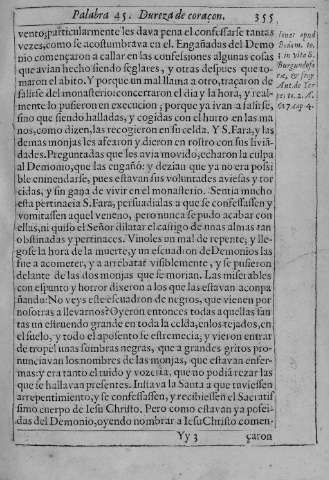 Palabra 45. Dureza de coraçon. 355
vento; particularmente les dava pena el confessarse tantas
vezes, como se acostumbrava en el. Engañadas del Demo
nio començaron a callar en las confessiones algunas cosas
que avian hecho siendo seglares, y otras despues que to-
maron el abito. Y porque un mal llama a otro, traçaron de
salirse del monasterio: concertaron el dia y la hora, y real
mente lo pusieron en execucion; porque ya ivan a salirse,
sino que siendo halladas, y cogidas con el hurto en las ma
nos, como dizen, las recogieron en su celda. Y S. Fara, y las
demas monjas les afearon y dieron en rostro con sus livia-
dades. Preguntadas que les avia movido, echaron la culpa
al Demonio, que las engañò: y dezian que ya no era possi
ble enmendarse, pues estavan sus voluntades aviesas y tor
cidas, y sin gana de vivir en el monasterio. Sentia mucho
esta pertinacia S. Fara, persuadialas a que se confessassen y
vomitassen aquel veneno, pero nunca se pudo acabar con
ellas, ni quiso el Señor dilatar el castigo de unas almas tan
obstinadas y pertinaces. Vinoles un mal de repente; y lle-
gose la hora de la muerte, y un escuadron de Demonios las
fue a acometer, y a arrebatar visiblemente, y se pusieron
delante de las dos monjas que se morian. Las miserables
con espanto y horror dixeron a los que las estavan acompa
ñando: No veys este escuadron de negros, que vienen por
nosotras a llevarnos? Oyeron entonces todas aquellas san
tas un estruendo grande en toda la celda, en los tejados, en
el suelo, y todo el aposento se estremecia; y vieron entrar
de tropel unas sombras negras, que a grandes gritos pro-
nunciavan los nombres de las monjas, que estavan enfer-
mas: y era tanto el ruido y vozeria, que no podia rezar las
que se hallavan presentes. Instava la Santa a que tuviessen
arrepentimiento, y se confessassen, y recibiessen el Sacratis
simo cuerpo de Iesu Christo. Pero como estavan ya posei-
das del Demonio, oyendo nombrar a Iesu Christo comen-
Yy 3 çaron
apud
Bedam. to.
3. in vita S.
Burgundofa
ra, &
Ant. de
to. 2.
617. cap 4.